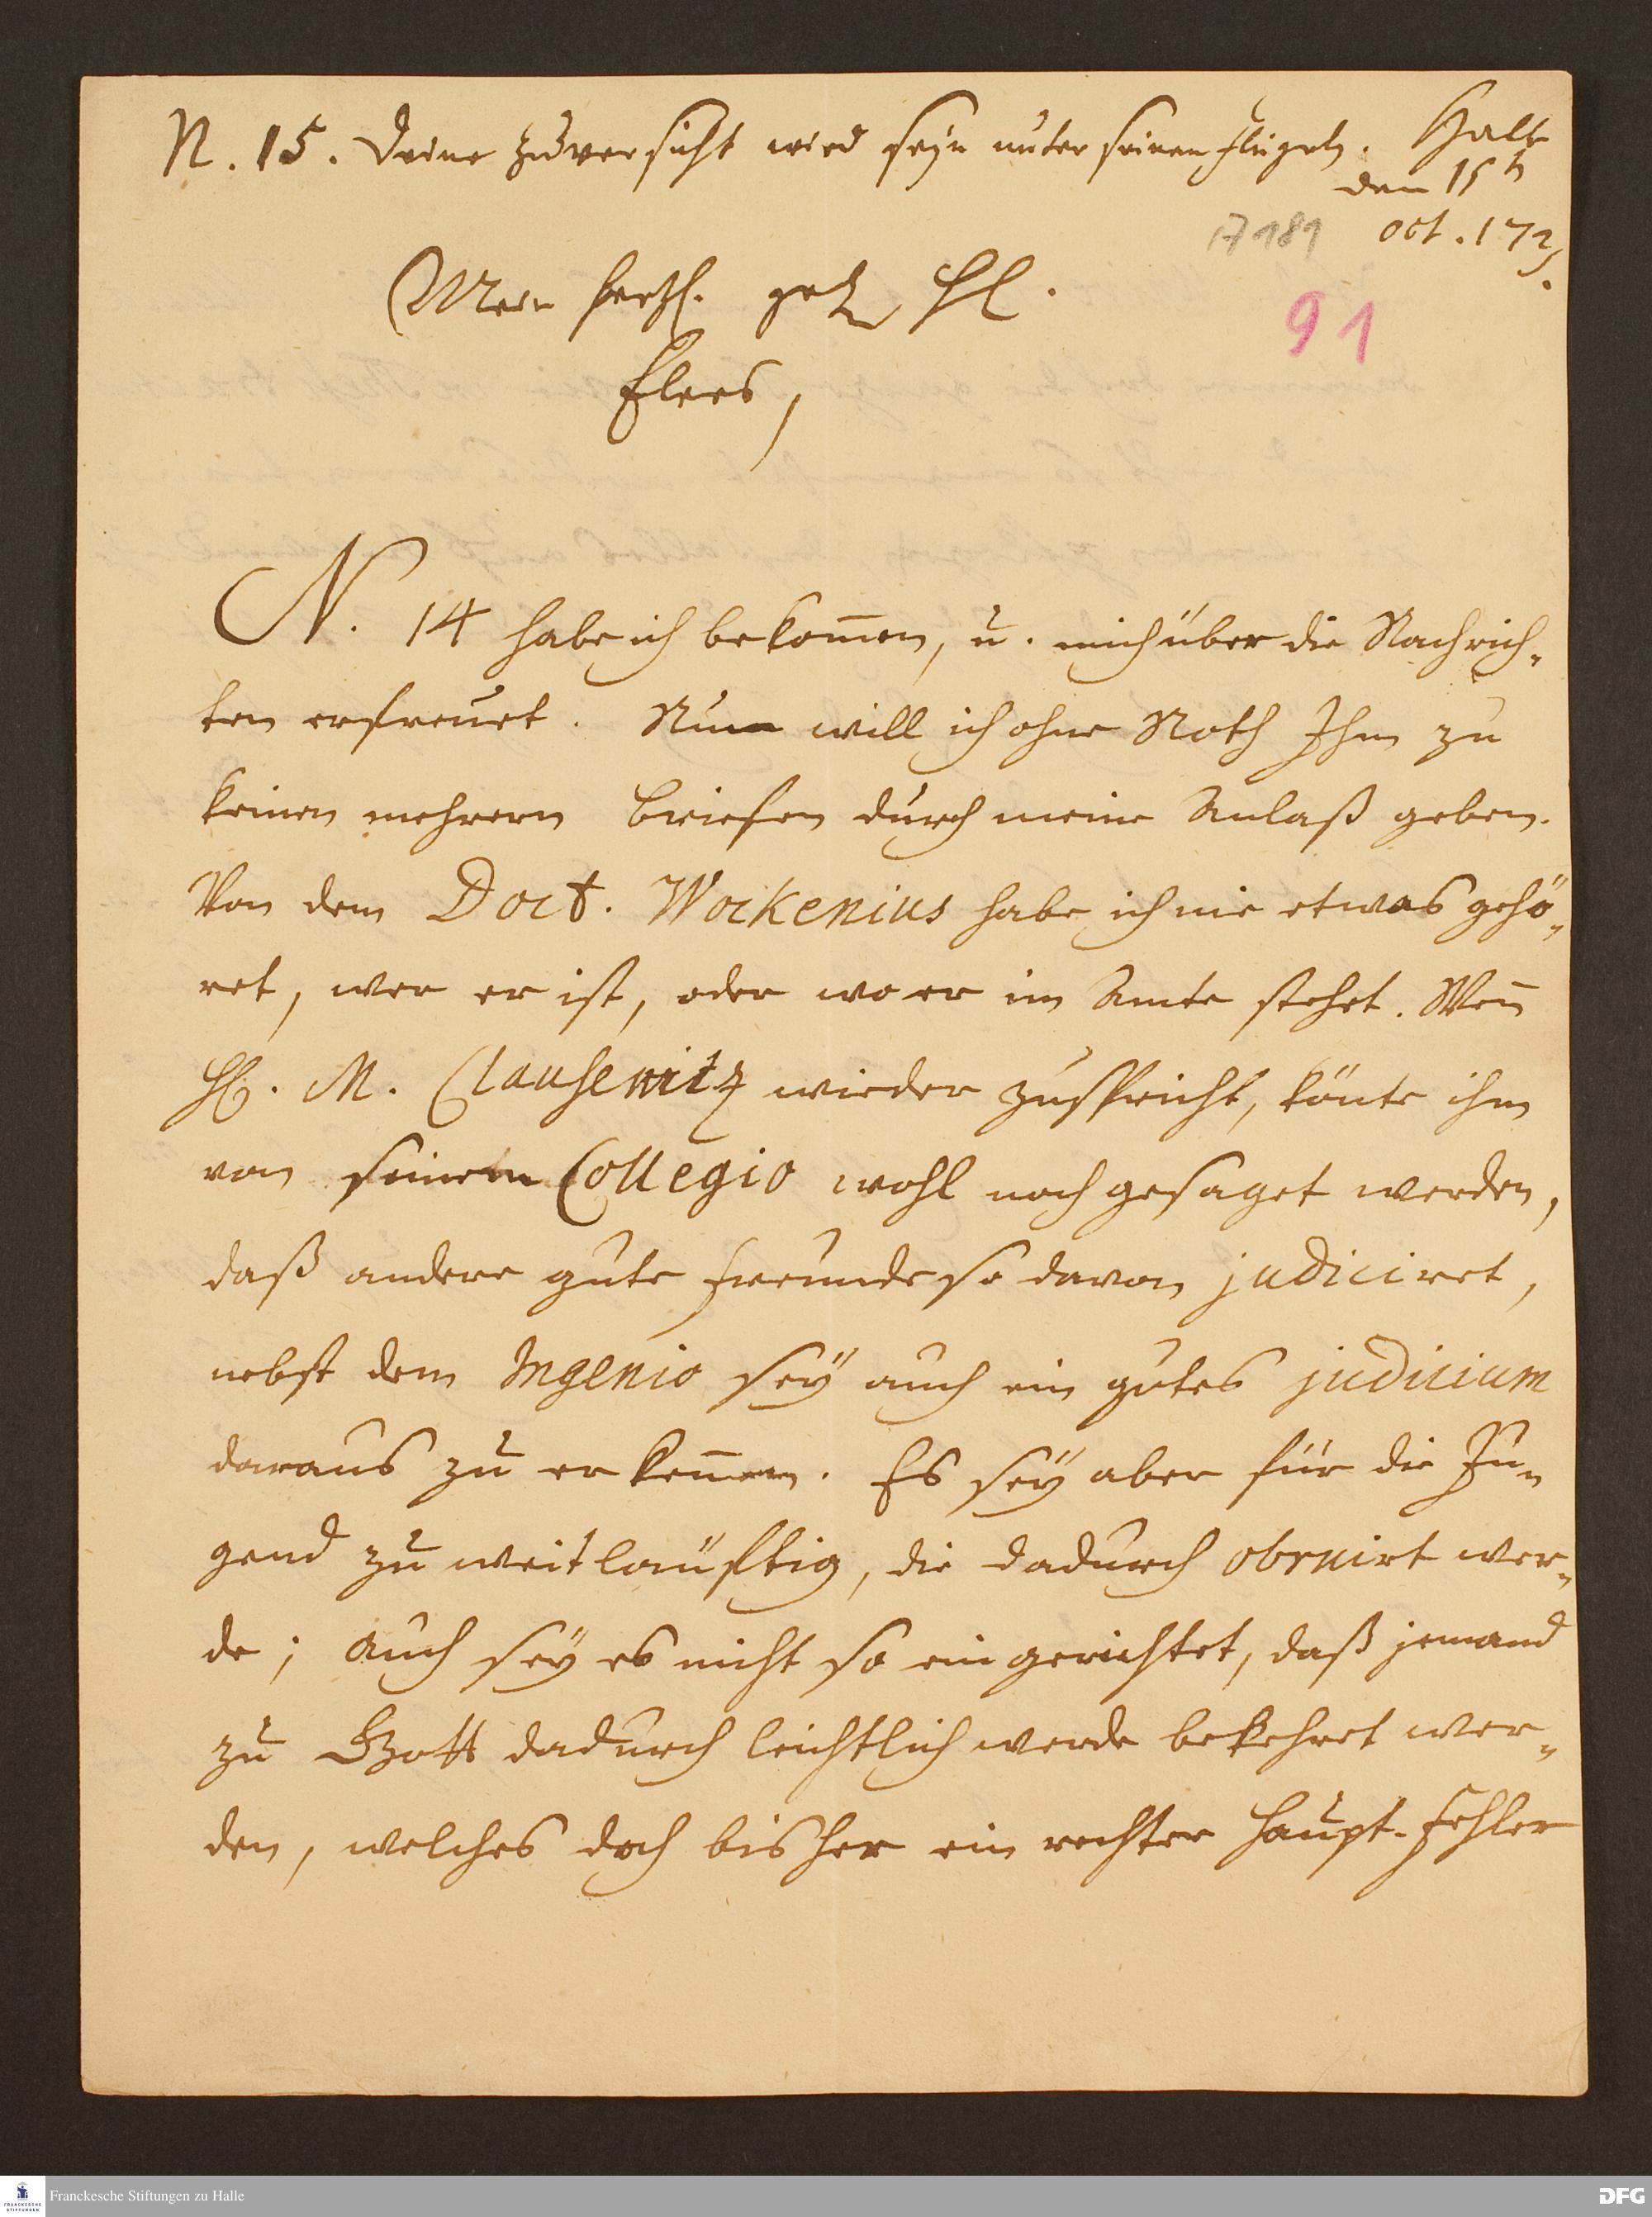 N. 15. Deine zuversicht wird seyn unter seinen Flügeln. Halle
den 15t
oct. 1725.
17181
91
Mein hertzl. gel. H.
Elers,
N. 14 habe ich bekom̄en, u. mich über die Nachrich-
ten erfreuet. Nun will ich ohne Noth Ihm zu
keinen mehrern briefen durch meine Anlaß geben.
Von dem Doct. Wockenius habe ich nie etwas gehö-
ret, wer er ist, oder wo er im Amte stehet. Wen̄
H. M. Clausewitz wieder zuspricht, könte ihm
von seinem Collegio wohl noch gesaget werden,
daß andere gute freunde so davon judiciret,
nebst dem Ingenio sey auch ein gutes judicium
daraus zu erken̄en. Es sey aber für die Ju-
gend zu weitläuftig, die dadurch obruirt wer-
de; auch sey es nicht so eingerichtet, daß jemand
zu Gott dadurch leichtlich werde bekehret wer-
den, welches doch bisher ein rechter Haupt-Fehler
Franckesche Stiftungen zu Halle
FRANCKESCHE
STIFTUNGEN
DFG